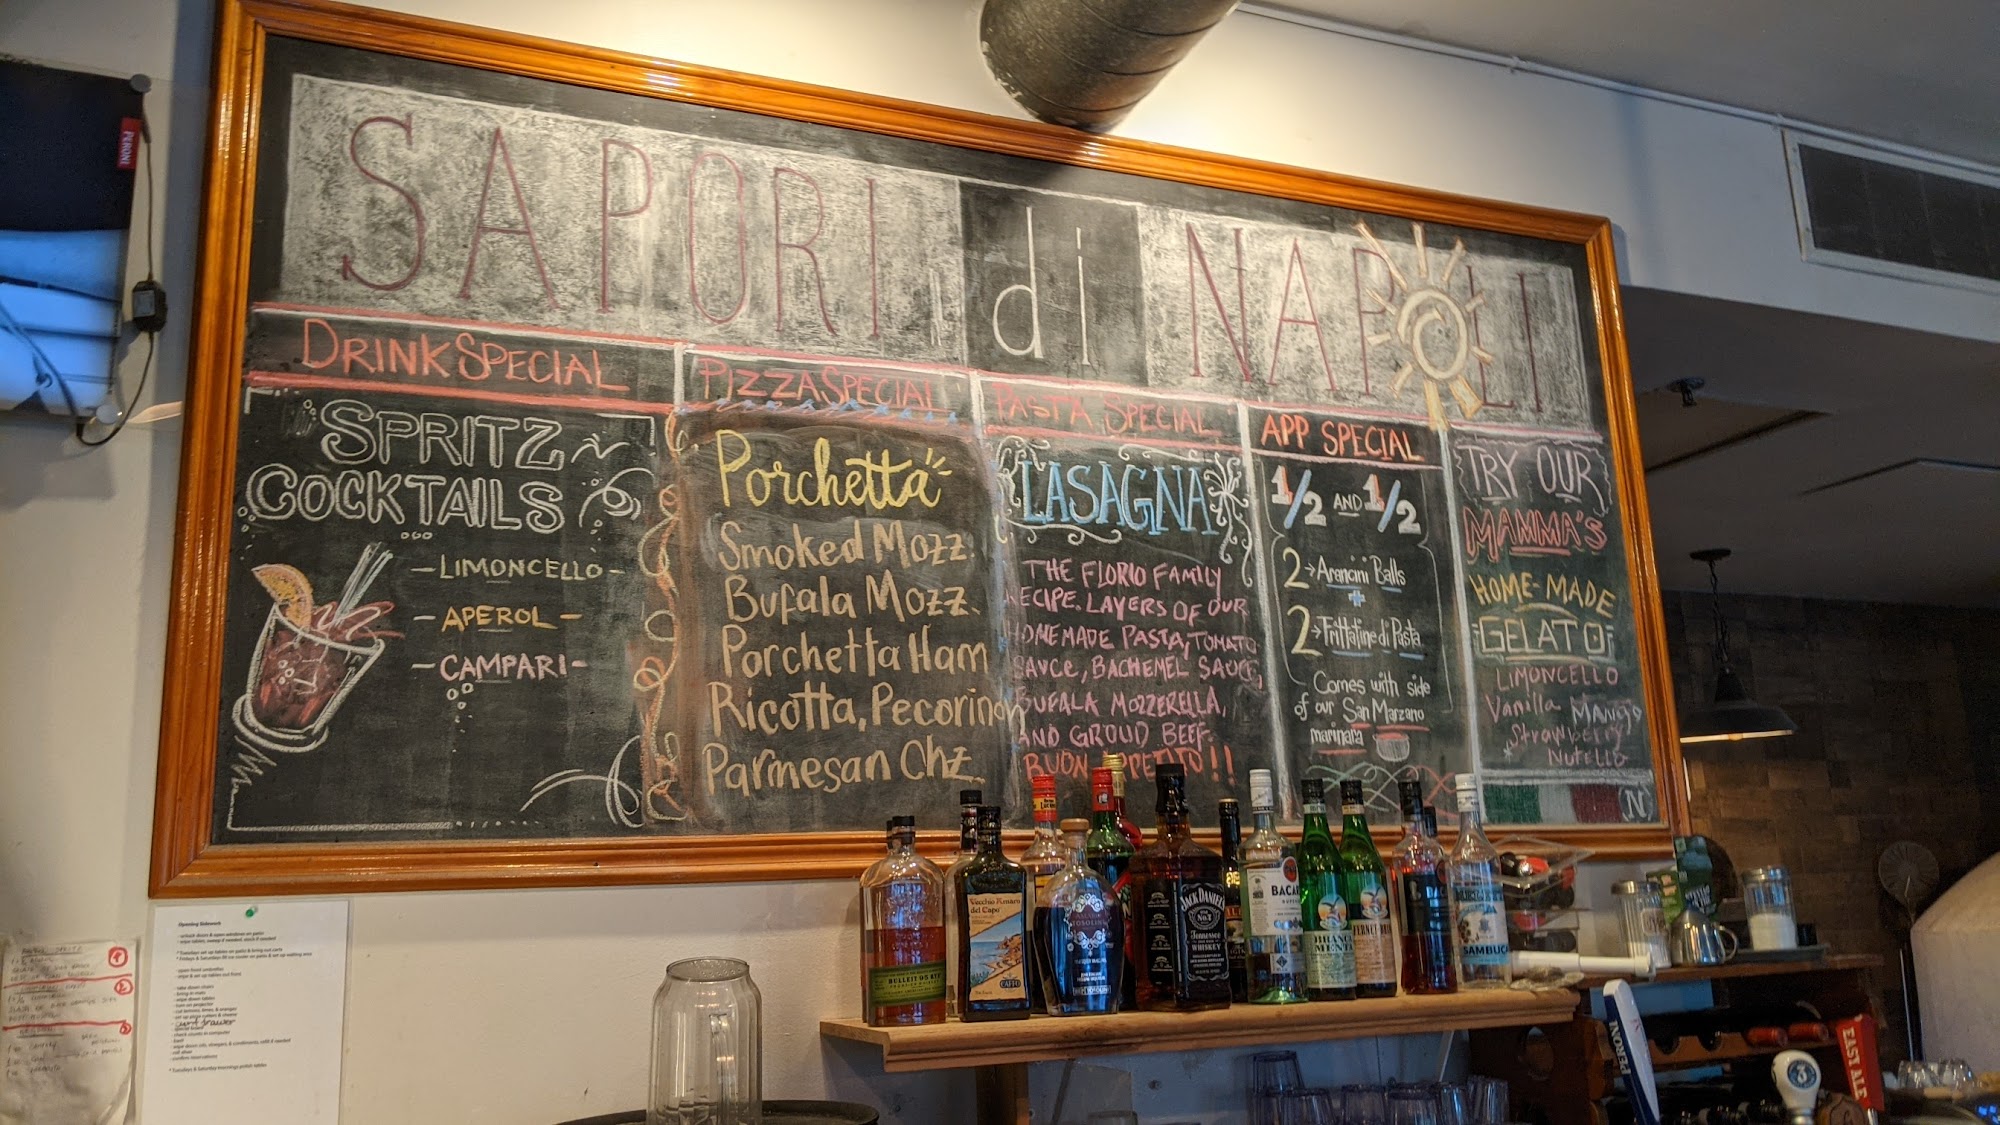 SAPORI di NAPOLI
DRINK SPECIAL
SPRITZ
COCKTAILS
- LIMONCELLO -
- APEROL -
- CAMPARI -
PIZZA SPECIAL
Porchetta
Smoked Mozz.
Bufala Mozz.
Porchetta Ham
Ricotta, Pecorino
Parmesan Chz
PASTA SPECIAL
LASAGNA
THE FLORIO FAMILY
RECIPE. LAYERS OF OUR
HOMEMADE PASTA, TOMATO
SAUCE, BACHEMEL SAUCE,
BUFALA MOZZERELLA,
AND GROUD BEEF.
BUON APPETITO!!
APP SPECIAL
1/2 AND 1/2
2 → Arancini Balls
+
2 → Frittatine di Pasta
Comes with side
of our San Marzano
marinara
TRY OUR
MAMMA'S
HOME-MADE
GELATO
LIMONCELLO
Vanilla MANGO
Strawberry
NUTELLA
N
PERONI
BULLEIT 95 RYE
Vecchio Amaro
del Capo
CAFFO
JACK DANIEL'S
No.7
Tennessee
WHISKEY
BACARDI
BRANCA
MENTA
FERNET
SAMBUCA
PERONI
EAST ALE
3
Opening Sidework